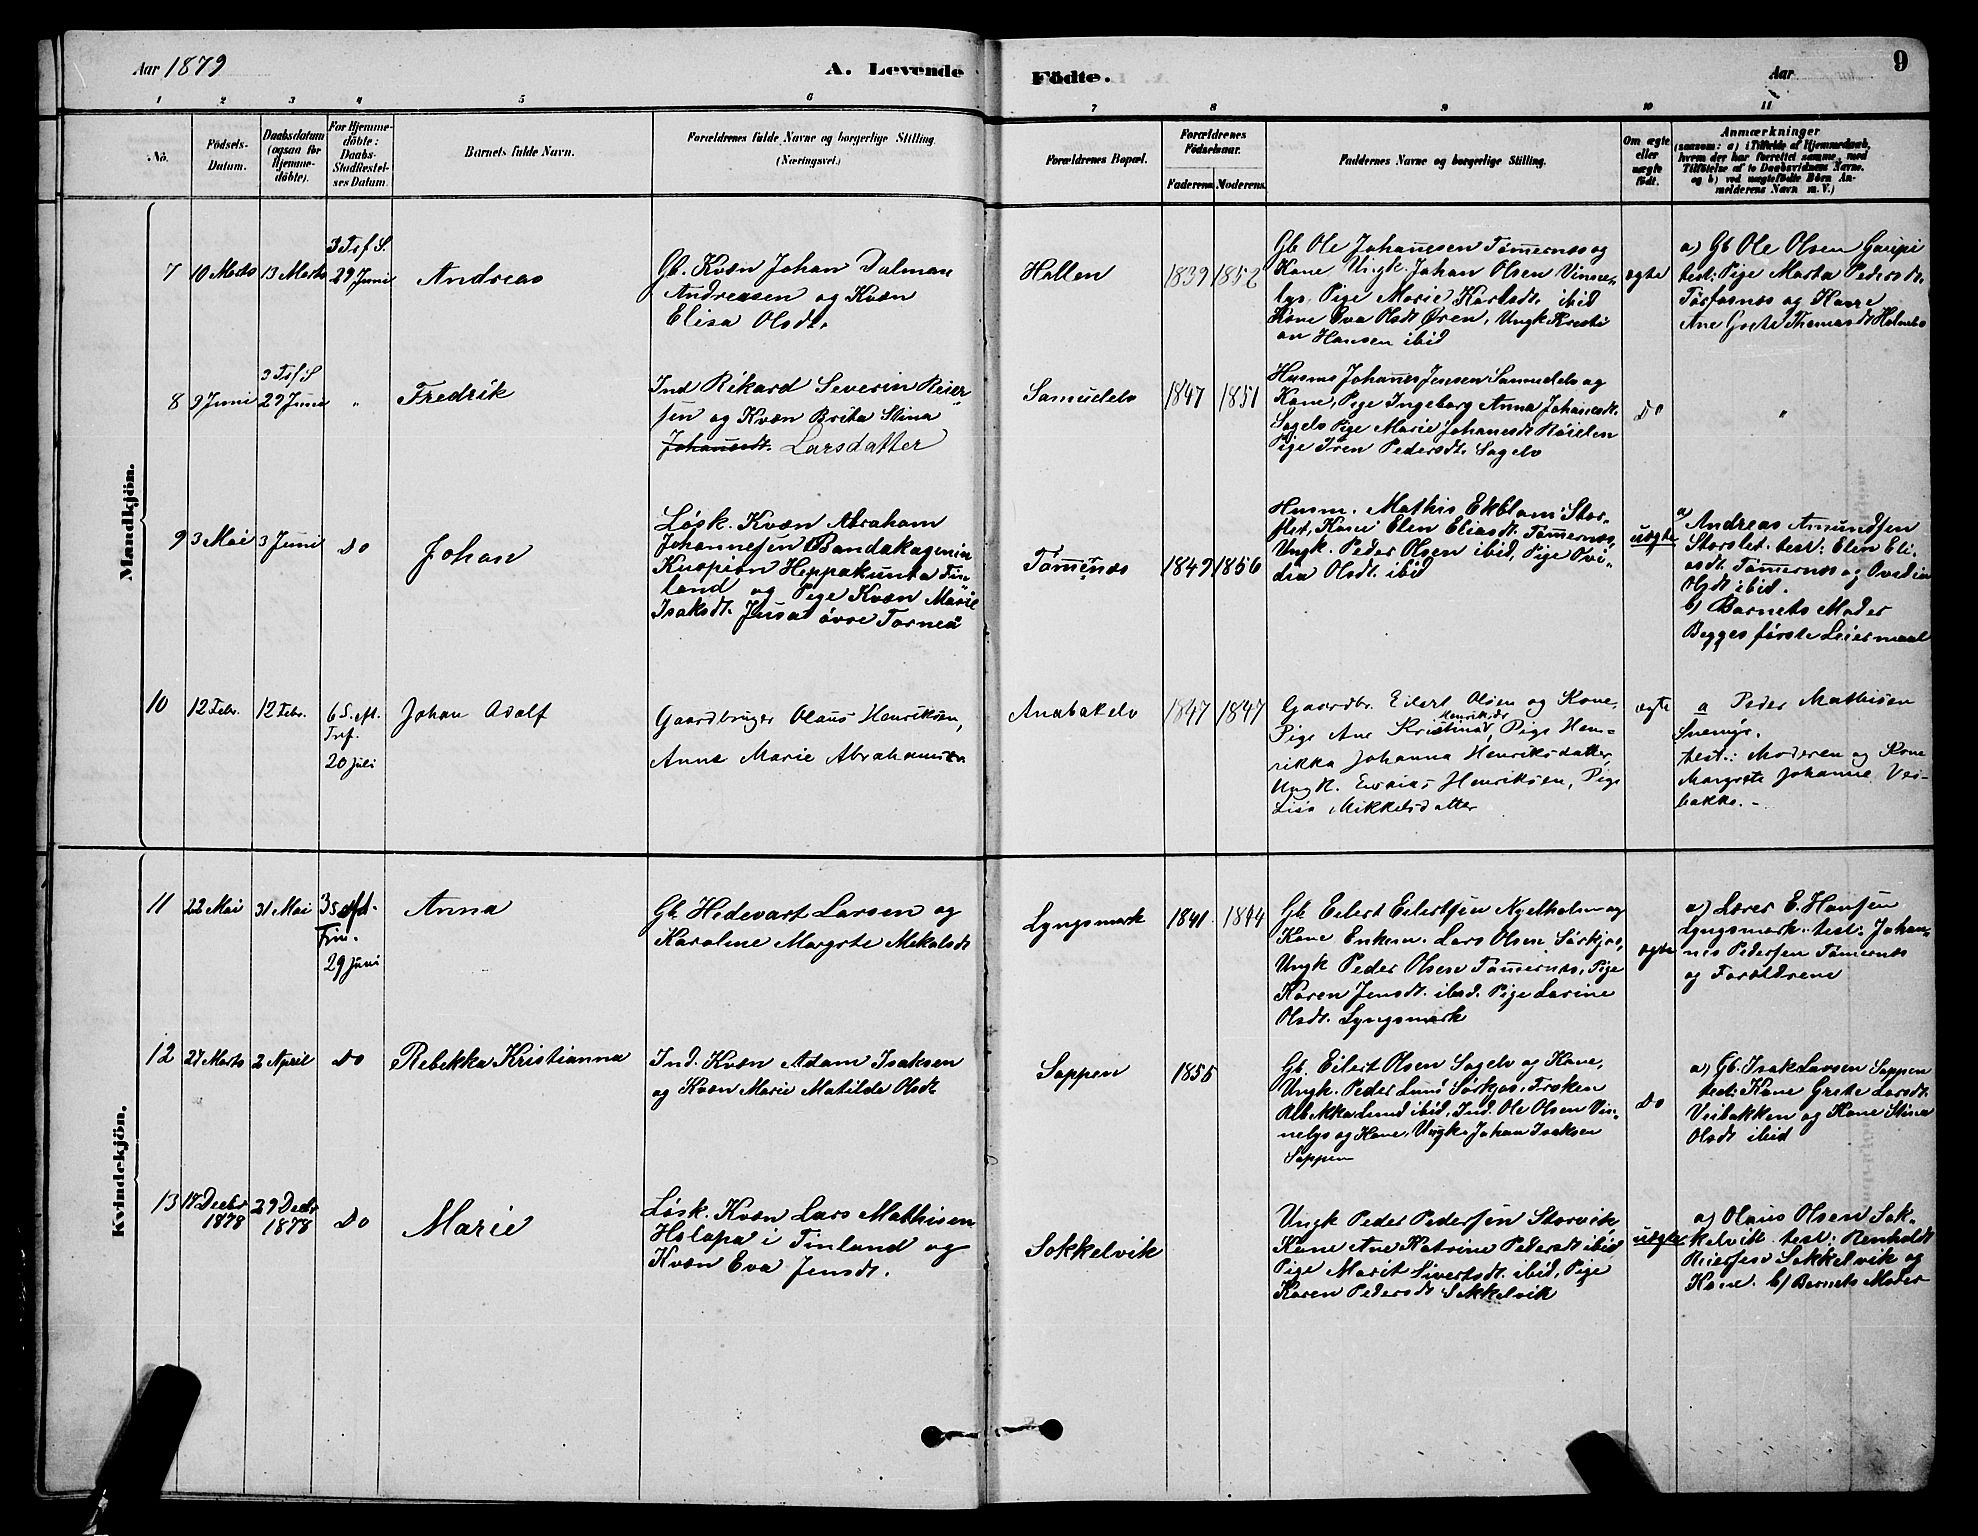 Aar 1879
A. Levende
Födte.
Aar
9
1 2 3 4 5 6 7 8 9 10 11
No.
Födsels-
Datum.
Daabsdatum
(ogsaa for
Hjemme-
döbte).
For Hjemme-
döbte:
Daabs-
Stadfæstel-
ses Datum.
Barnets fulde Navn.
Forældrenes fulde Navne og borgerlige Stilling
(Næringsvei.)
Forældrenes Bopæl.
Forældrenes
Födselsaar.
Faderens. Moderens.
Faddernes Navne og borgerlige Stilling.
Om ægte
eller
uægte
födt.
Anmærkninger
(saasom: a) i Tilfælde af Hjemmedaab,
hvem der har forrettet samme, med
Tilföielse af to Daabsvidners Navne,
og b) ved uægtefödte Börn An-
melderens Navn m. V.)
Mandkjön.
7
10 Marts
13 Marts
3 T s f S.
29 Juni
Andreas
Gb. Kvæn Johan Dalman
Andreasen og Kvæn
Elisa Olsdt.
Hallen
1839
1852
Gb Ole Johannesen Tømmernæs og
Kone Ungk. Johan Olsen Vinne-
lys, Pige Marie Karlsdt. ibid
Kone Eva Olsdt Øren, Ungk Kristi
an Hansen ibid
ægte
a) Gb Ole Olsen Gaupi
test: Pige Marta Pedersdt.
Torfosnæs og Kone
Ane Grete Thomasdt Holmebo
8
9 Juni
3 T s f S
29 Juni
"
Fredrik
Ind Rikard Severin Reier
sen og Kvæn Brita Stina
Johansdt. Larsdatter
Samuelelv
1847
1851
Husm Johanes Jensen Samuelelv og
Kone, Pige Ingeborg Anna Johanesdt.
Sagelv Pige Marie Johanesdt Røielen
Pige Iren Pedersdt. Sagelv
Do
"
9
3 Mai
3 Juni
Do
Johan
Løsk. Kvæn Abraham
Johannesen Bandakagenin
Kuopion Heppakunta Fin
land og Pige Kvæn Marie
Isaksdt. Jusa øvre Torneå
Tømernæs
1849
1856
Husm. Mathis Ekblom Stor-
slet, Kone Elen Eliasdt. Tømernæs,
Ungk. Peder Olsen ibid, Pige Ovi-
dia Olsdt. ibid
uægte
a)
Andreas Amundsen
Storslet. test: Elen Eli-
asdt. Tømernæs og Ovedia
Olsdt ibid.
b) Barnets Moder
Begges første Leiermaal
10
12 Febr.
12 Febr.
6 S. At.
Tref.
20 Juli
Johan Adolf
Gaardbruger Olaus Henriksen,
Anne Marie Abrahams
Anabakelv
1847
1847
Gaardbr. Eilert Olsen og Kone,
Pige Ane Henriksdr, Pige Hen-
rikka Johanna Henriksdatter,
Ungk. Esaias Henriksen, Pige
Lisa Mikkelsdatter
ægte
a Peder Mathisen
Snemyr.
test.: Moderen og Kone
Margrete Johanne Vei-
bakke. -
Kvindekjön.
11
22 Mai
31 Mai
3 S eft.
Trin.
29 Juni
Anna
Gb. Hedevart Larsen og
Karoline Margrte Mekalsdt
Lyngsmark
1841
1844
Gb Eilert Eilertsen Kjelholm og
Kone Enkem. Lars Olsen Sørkjos,
Ungk Peder Olsen Tømmernæs, Pige
Karen Jensdt. ibid. Pige Larine
Olsdt. Lyngsmark
ægte
a) Lærer E. Hansen
Lyngsmark. test: Johan-
nes Pedersen Tømernæs
og Forældrene
12
27 Marts
2 April
Do
Rebekka Kristianna
Ind. Kvæn Adam Isaksen
og Kvæn Marie Matilde Olsdt
Sappen
1855
Gb. Eilert Olsen Sagelv og Kone,
Ungk. Peder Lund Sørkjos, Frøken
Rebekka Lund ibid, Ind. Ole Olsen Vin-
nelys og Kone, Ungk. Johan Isaksen
Sappen
Do
a) Gb. Isak Larsen Sappen
test: Kone Grete Larsdt.
Veibakken og Kone Stina
Olsdt ibid
13
17 Decbr
1878
29 Decbr
1878
Do
Marie
Løsk. Kvæn Lars Mathisen
Holapa i Finland og
Kvæn Eva Jensdt.
Sokkelvik
Ungk Peder Pedersen Storvik
Kone Ane Katrine Pedersdt ibid
Pige Marit Sivertsdt. ibid, Pige
Karen Pedersdt Sokkelvik
uægte
a) Olaus Olsen Sok-
kelvik test: Renholdt
Reiersen Sokkelvik og
Kone. b) Barnets Moder